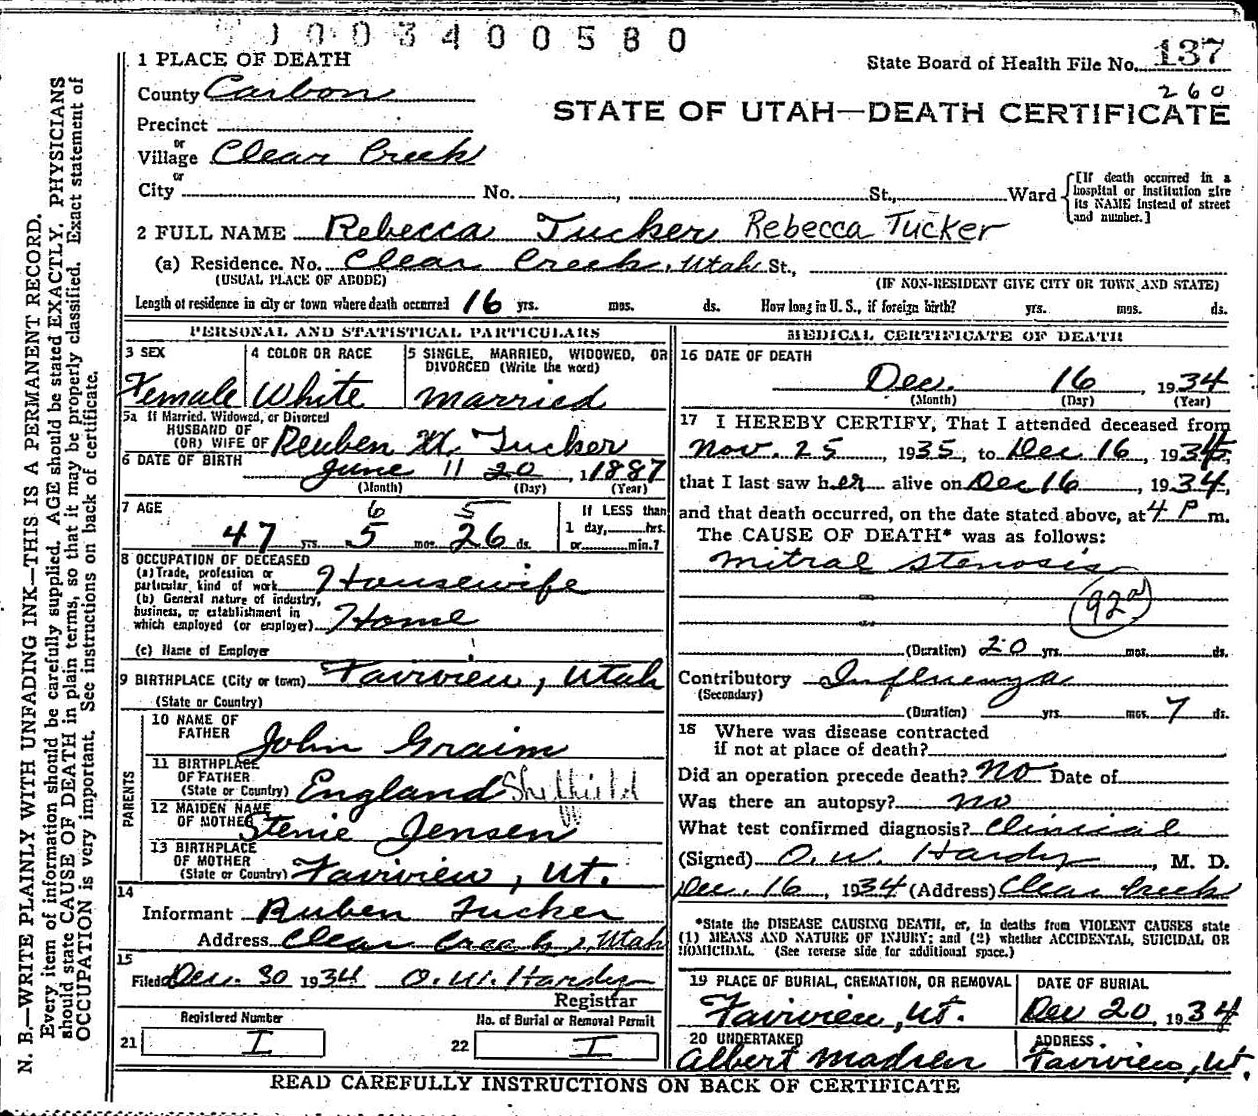 003400580
1 PLACE OF DEATH
State Board of Health File No. 137
County Carbon
260
STATE OF UTAH—DEATH CERTIFICATE
Precinct
or
Village Clear Creek
or
City No. , St., Ward
[If death occurred in a
hospital or institution give
its NAME instead of street
and number.]
2 FULL NAME Rebecca Tucker Rebecca Tucker
(a) Residence. No. Clear Creek, Utah St.,
(USUAL PLACE OF ABODE) (IF NON-RESIDENT GIVE CITY OR TOWN AND STATE)
Length of residence in city or town where death occurred 16 yrs. mos. ds. How long in U. S., if foreign birth? yrs. mos. ds.
PERSONAL AND STATISTICAL PARTICULARS
3 SEX
Female
4 COLOR OR RACE
White
5 SINGLE, MARRIED, WIDOWED, OR
DIVORCED (Write the word)
married
5a If Married, Widowed, or Divorced
HUSBAND OF
(OR) WIFE OF Reuben Tucker
6 DATE OF BIRTH June 11 20, 1887
(Month) (Day) (Year)
7 AGE
6 5
47 yrs. 5 mos. 26 ds.
If LESS than
1 day, hrs.
or min.?
8 OCCUPATION OF DECEASED
(a) Trade, profession or
particular kind of work Housewife
(b) General nature of industry,
business, or establishment in
which employed (or employer) Home
(c) Name of Employer
9 BIRTHPLACE (City or town) Fairview, Utah
(State or Country)
PARENTS
10 NAME OF
FATHER John Graim
11 BIRTHPLACE
OF FATHER
(State or Country) England Sheffield
12 MAIDEN NAME
OF MOTHER Stenie Jensen
13 BIRTHPLACE
OF MOTHER
(State or Country) Fairview, Ut.
14
Informant Ruben Tucker
Address Clear Creek, Utah
15
Filed Dec. 30 1934 O. W. Hardy
Registrar
Registered Number
21 I
No. of Burial or Removal Permit
22 I
MEDICAL CERTIFICATE OF DEATH
16 DATE OF DEATH
Dec. 16, 1934
(Month) (Day) (Year)
17 I HEREBY CERTIFY, That I attended deceased from
Nov. 25, 1935, to Dec 16, 1934,
that I last saw her alive on Dec 16, 1934,
and that death occurred, on the date stated above, at 4 P m.
The CAUSE OF DEATH* was as follows:
Mitral Stenosis
92a
(Duration) 20 yrs. mos. ds.
Contributory Influenza
(Secondary)
(Duration) yrs. mos. 7 ds.
18 Where was disease contracted
if not at place of death?
Did an operation precede death? No Date of
Was there an autopsy? no
What test confirmed diagnosis? Clinical
(Signed) O. W. Hardy, M. D.
Dec. 16, 1934 (Address) Clear Creek
*State the DISEASE CAUSING DEATH, or, in deaths from VIOLENT CAUSES state
(1) MEANS AND NATURE OF INJURY; and (2) whether ACCIDENTAL, SUICIDAL OR
HOMICIDAL. (See reverse side for additional space.)
19 PLACE OF BURIAL, CREMATION, OR REMOVAL
Fairview, Ut.
DATE OF BURIAL
Dec 20, 1934
20 UNDERTAKER
Albert Madsen
ADDRESS
Fairview, Ut.
READ CAREFULLY INSTRUCTIONS ON BACK OF CERTIFICATE
N. B.—WRITE PLAINLY WITH UNFADING INK—THIS IS A PERMANENT RECORD.
Every item of information should be carefully supplied. AGE should be stated EXACTLY. PHYSICIANS
should state CAUSE OF DEATH in plain terms, so that it may be properly classified. Exact statement of
OCCUPATION is very important. See instructions on back of certificate.